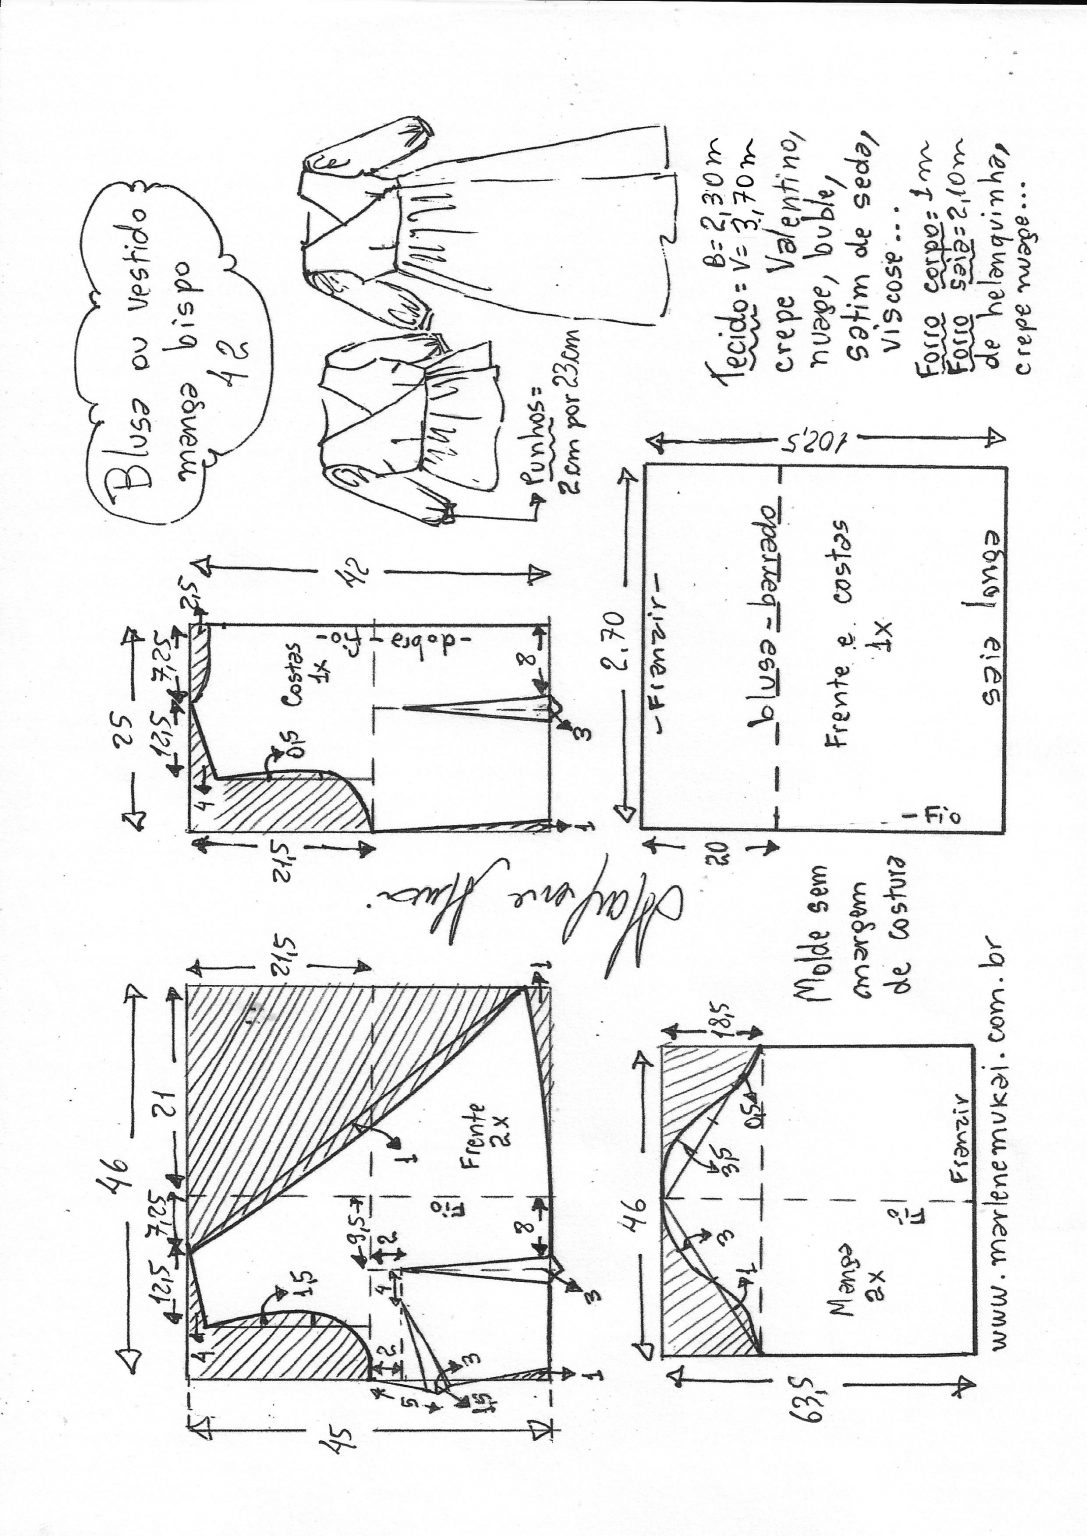 Blusa ou vestido
manga bispo
42
Punhos =
2cm por 23cm
Tecido = B = 2,30m
V = 3,70m
crepe Valentino,
nuage, buble,
satim de seda,
viscose...
Forro corpo = 1m
Forro saia = 2,10m
de helanquinha,
crepe nuage...
25
12,5
7,25
2,5
4
0,5
Costas
1x
- dobra - fio -
42
21,5
8
3
1
46
12,5
7,25
21
21,5
4
1,5
1
9,5
2
4
2
5
3
1,5
Frente
2x
Fio
8
3
1
1
45
Marlene Mukai
2.70
- Franzir -
102,5
20
blusa - barrado
Frente e costas
1x
- Fio
saia longa
Molde sem
margem
de costura
46
18,5
3
1
3,5
0,5
Manga
2x
Fio
Franzir
63,5
www.marlenemukai.com.br